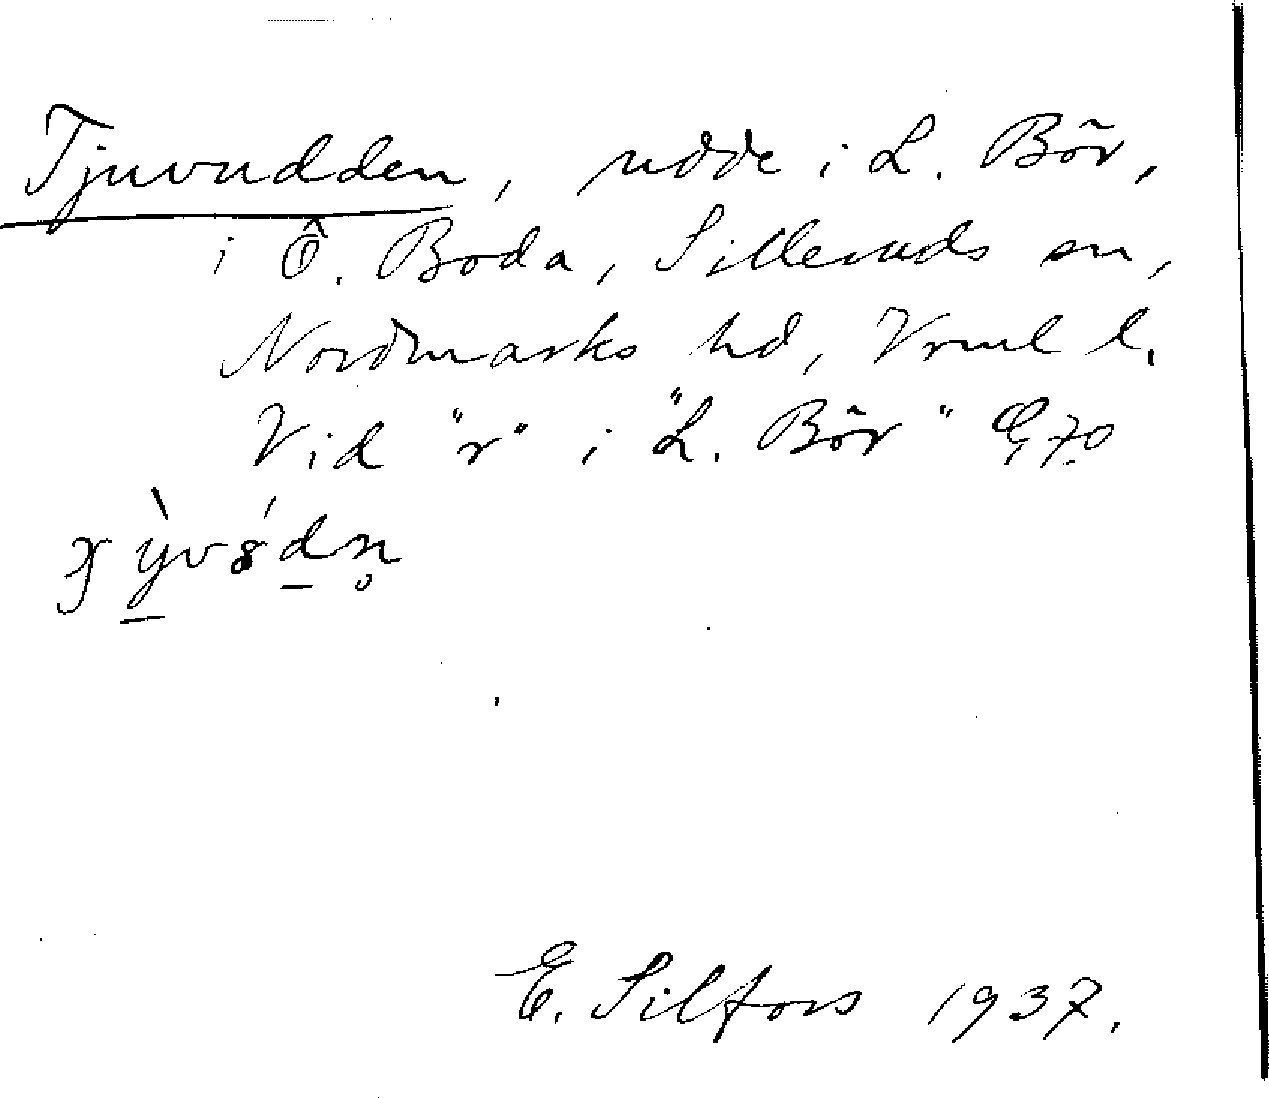 Tjuvudden, udde i L. Bör,
i Ö. Boda, Silleruds sn,
Nordmarks hd, Vrml l.
Vid "r" i "L. Bör"
E. Silfors 1937.